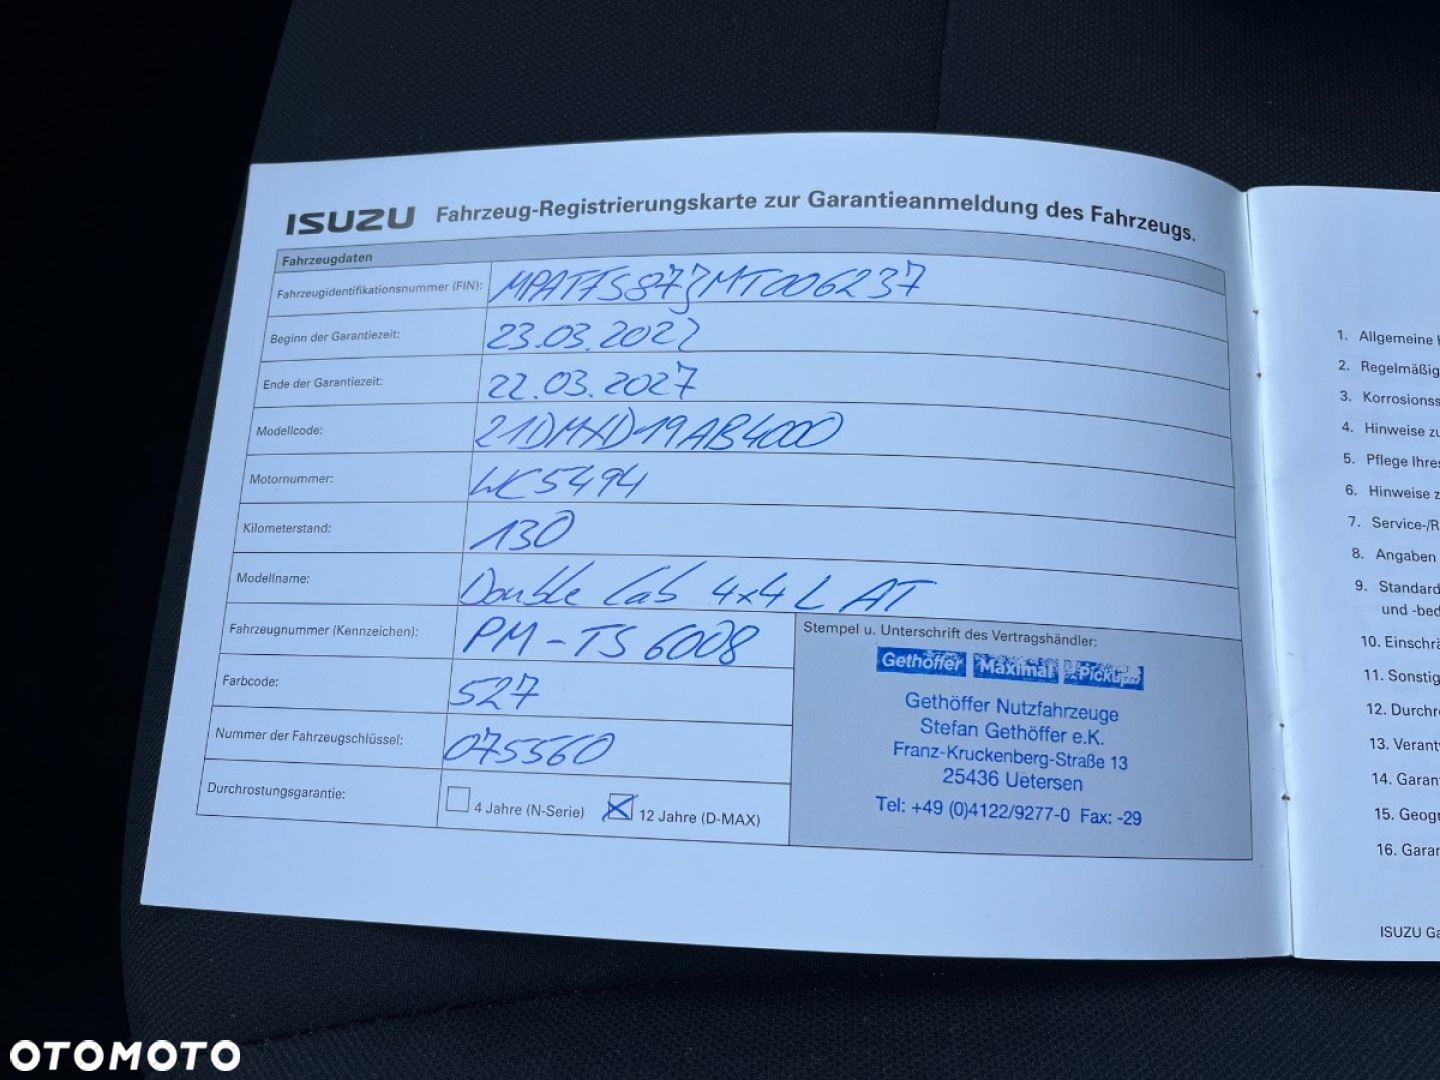 ISUZU Fahrzeug-Registrierungskarte zur Garantieanmeldung des Fahrzeugs.
Fahrzeugdaten
Fahrzeugidentifikationsnummer (FIN): MPATFS87JMT006237
Beginn der Garantiezeit: 23.03.2022
Ende der Garantiezeit: 22.03.2027
Modellcode: 21DMXD19AB4000
Motornummer: WC5494
Kilometerstand: 130
Modellname: Double Cab 4x4 L AT
Fahrzeugnummer (Kennzeichen): PM-TS 6008
Farbcode: 527
Nummer der Fahrzeugschlüssel: 075560
Durchrostungsgarantie: 4 Jahre (N-Serie) 12 Jahre (D-MAX)
Stempel u. Unterschrift des Vertragshändler:
Gethöffer Maximal Pickup
Gethöffer Nutzfahrzeuge
Stefan Gethöffer e.K.
Franz-Kruckenberg-Straße 13
25436 Uetersen
Tel: +49 (0)4122/9277-0 Fax: -29
1. Allgemeine
2. Regelmäßig
3. Korrosionss
4. Hinweise zu
5. Pflege Ihres
6. Hinweise z
7. Service-/R
8. Angaben
9. Standard
und -bed
10. Einschrä
11. Sonstig
12. Durchro
13. Verant
14. Garan
15. Geogr
16. Garan
ISUZU Ga
OTOMOTO